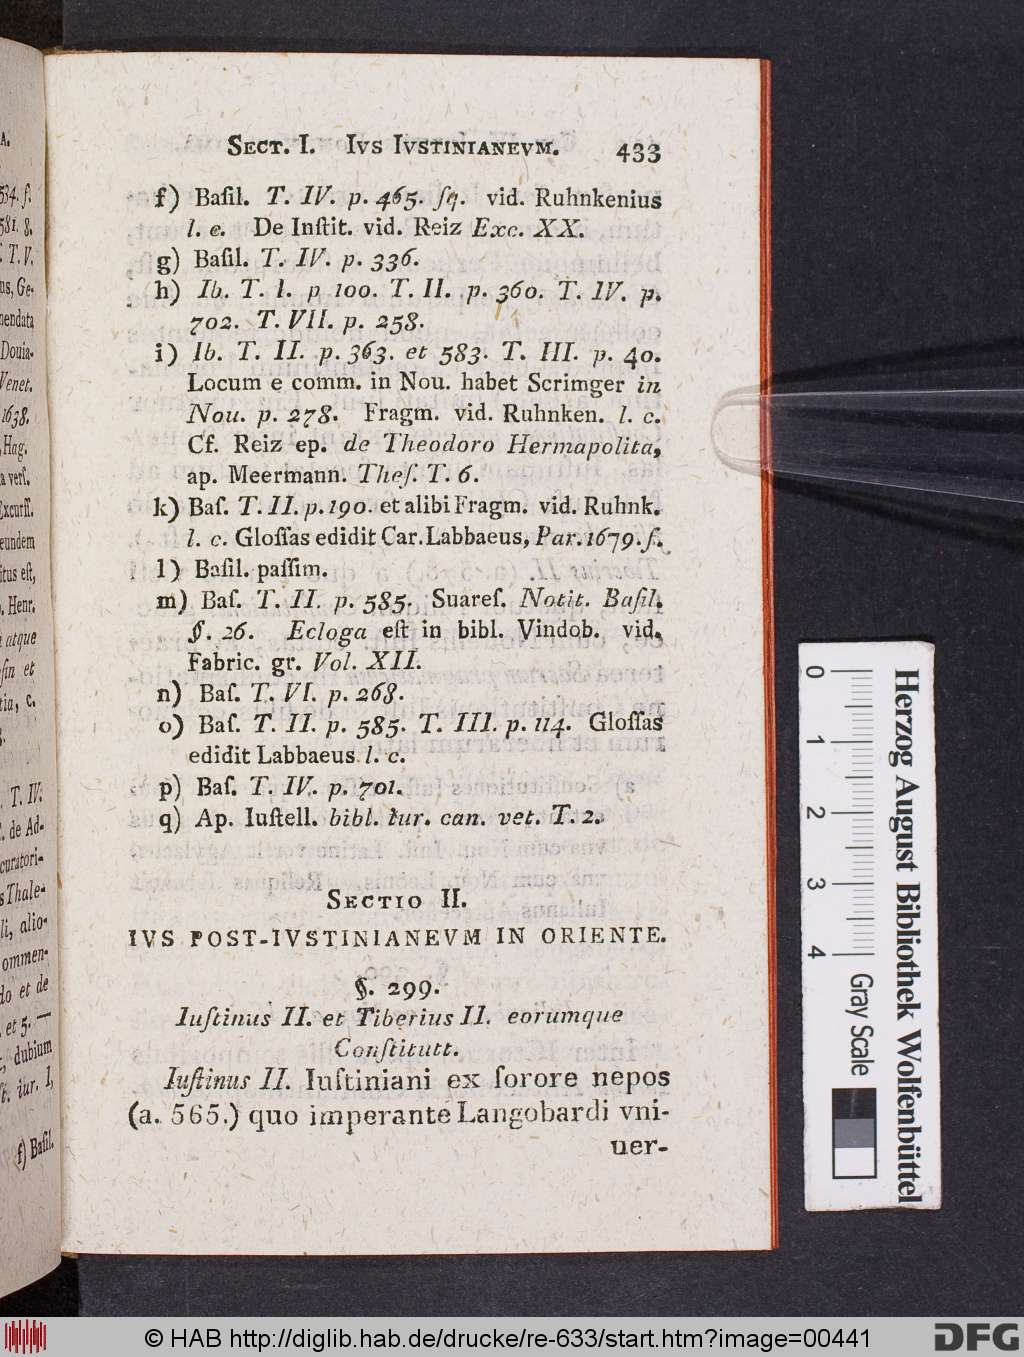 SECT. I. IVS IVSTINIANEVM. 433
f) Baſil. T. IV. p. 465. ſq. vid. Ruhnkenius
l. c. De Inſtit. vid. Reiz Exc. XX.
g) Baſil. T. IV. p. 336.
h) Ib. T. I. p 100. T. II. p. 360. T. IV. p.
702. T. VII. p. 258.
i) Ib. T. II. p. 363. et 583. T. III. p. 40.
Locum e comm. in Nou. habet Scrimger in
Nou. p. 278. Fragm. vid. Ruhnken. l. c.
Cf. Reiz ep. de Theodoro Hermapolita,
ap. Meermann. Theſ. T. 6.
k) Baſ. T. II. p. 190. et alibi Fragm. vid. Ruhnk.
l. c. Gloſſas edidit Car. Labbaeus, Par. 1679. f.
l) Baſil. paſſim.
m) Baſ. T. II. p. 585. Suareſ. Notit. Baſil.
§. 26. Ecloga eſt in bibl. Vindob. vid.
Fabric. gr. Vol. XII.
n) Baſ. T. VI. p. 268.
o) Baſ. T. II. p. 585. T. III. p. 114. Gloſſas
edidit Labbaeus l. c.
p) Baſ. T. IV. p. 701.
q) Ap. Iuſtell. bibl. iur. can. vet. T. 2.
SECTIO II.
IVS POST-IVSTINIANEVM IN ORIENTE.
§. 299.
Iuſtinus II. et Tiberius II. eorumque
Conſtitutt.
Iuſtinus II. Iuſtiniani ex ſorore nepos
(a. 565.) quo imperante Langobardi vni-
uer-
A.
534. ſ.
581. 8.
T. V.
us, Ge-
nendata
Douia-
Venet.
1638.
Hag.
a verſ.
Excurſſ.
eundem
itus eſt,
Henr.
atque
ſin et
tia, c.
T. IV.
de Ad-
curatori-
s Thale-
li, alio-
ommen-
do et de
et 5. —
dubium
t. iur. I,
f) Baſil.
0 1 2 3 4
Herzog August Bibliothek Wolfenbüttel
Gray Scale
© HAB http://diglib.hab.de/drucke/re-633/start.htm?image=00441
DFG